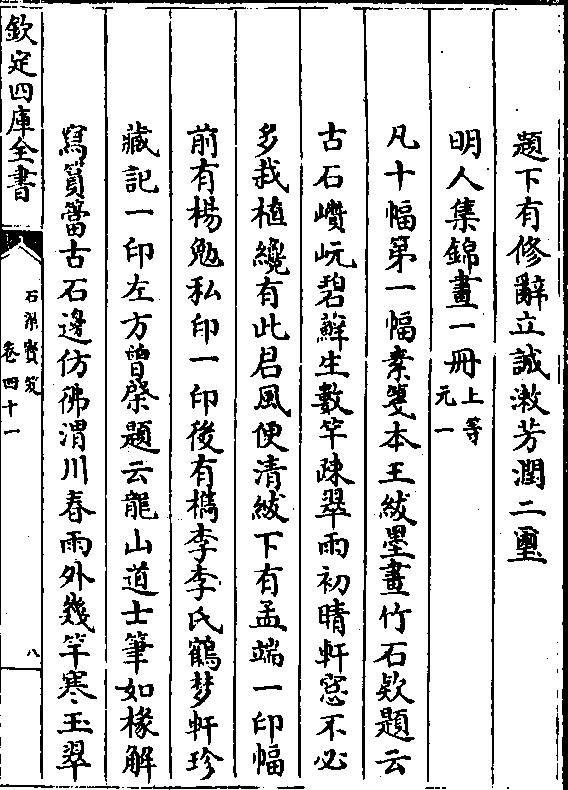 題下有修辭立誠漱芳潤二璽
明人集錦畫一冊上等
元一
凡十幅第一幅素箋本王紱墨畫竹石欵題云
古石巑岏碧蘚生數竿疎翠雨初晴軒窓不必
多栽植纔有此君風便清紱下有孟端一印幅
前有楊勉私印一印後有檇李李氏鶴夢軒珍
藏記一印左方曾棨題云龍山道士筆如椽解
寫篔簹古石邊仿彿渭川春雨外幾竿寒玉翠
欽定四庫全書
石渠寶笈
卷四十一
八